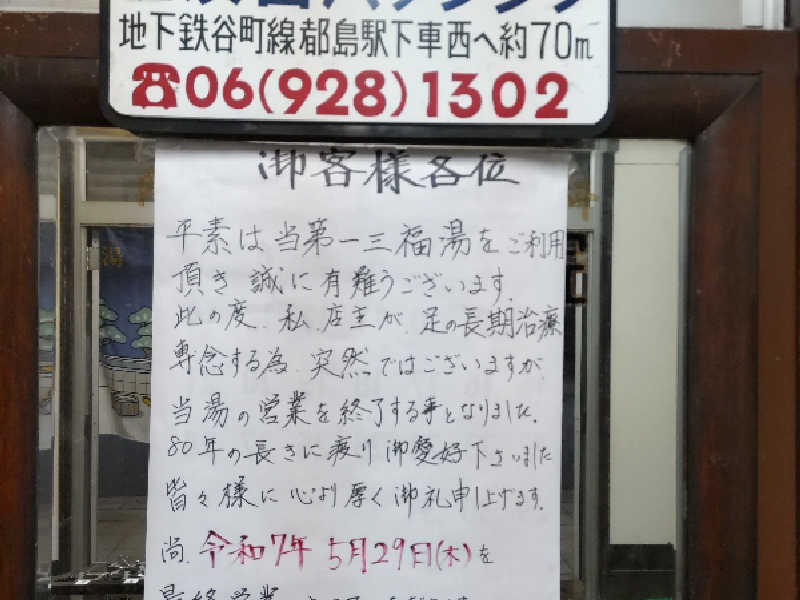 地下鉄谷町線都島駅下車西へ約70m
☎06(928)1302
御客様各位
平素は当第一三福湯をご利用
頂き誠に有難うございます。
此の度、私、店主が、足の長期治療
専念する為、突然ではございますが
当湯の営業を終了する事となりました。
80年の長きに疲り御愛好下さいました
皆々様に心より厚く御礼申し上げます。
尚、令和7年5月29日(木)を
最終営業